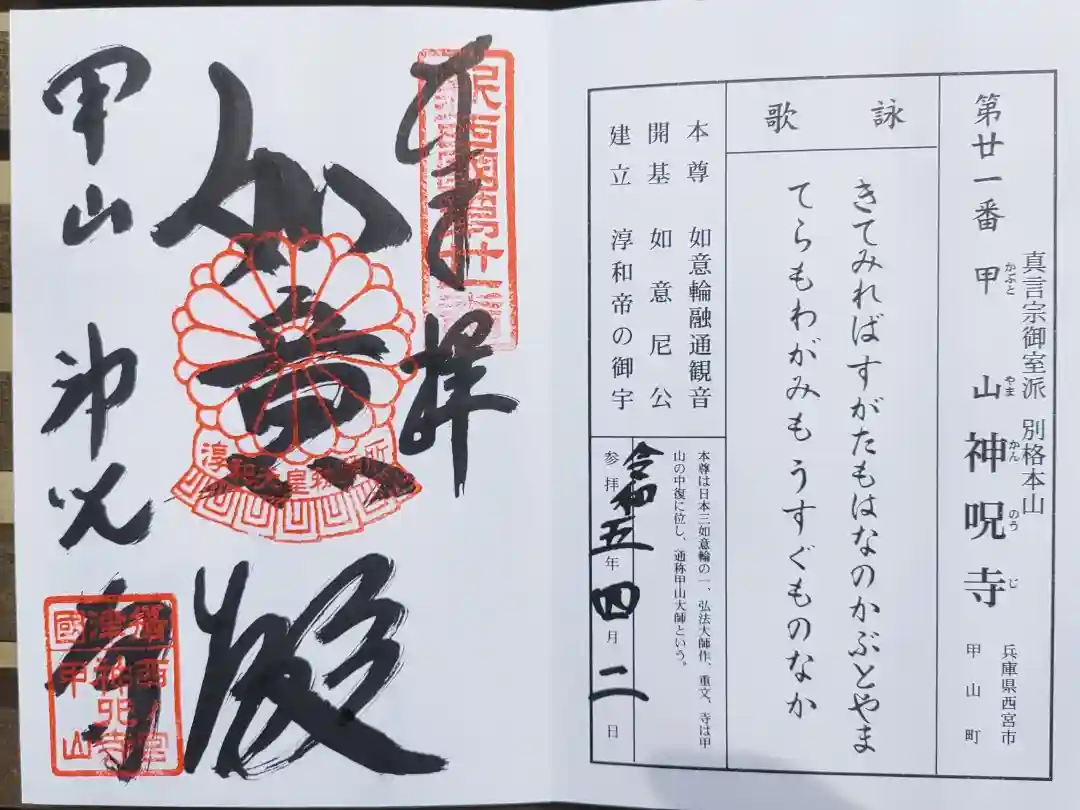 真言宗御室派 別格本山
第廿一番 甲山 神呪寺
かぶと やま かん のう じ
兵庫県西宮市
甲山町
詠歌
きてみればすがたもはなのかぶとやま
てらもわがみもうすぐものなか
本尊 如意輪融通観音
開基 如意尼公
建立 淳和帝の御宇
本尊は日本三如意輪の一、弘法大師作、重文、寺は甲
山の中復に位し、通称甲山大師という。
参拝 令和五年四月二日
奉拝
如意殿
甲山 神呪寺
攝津國
西ノ宮
神呪寺
甲山